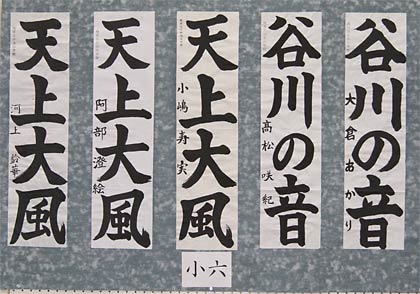 谷川の音
大倉あかり
谷川の音
高松咲紀
天上大風
小嶋寿実
天上大風
阿部澄絵
天上大風
河上
小六